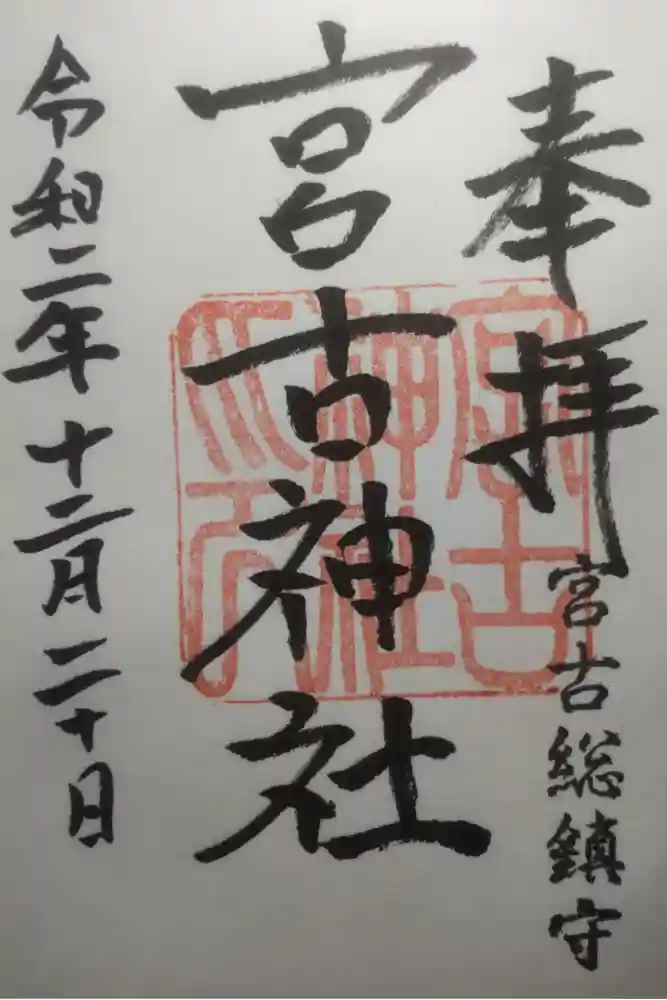 奉拝
宮古総鎮守
宮古神社
令和二年十二月二十日